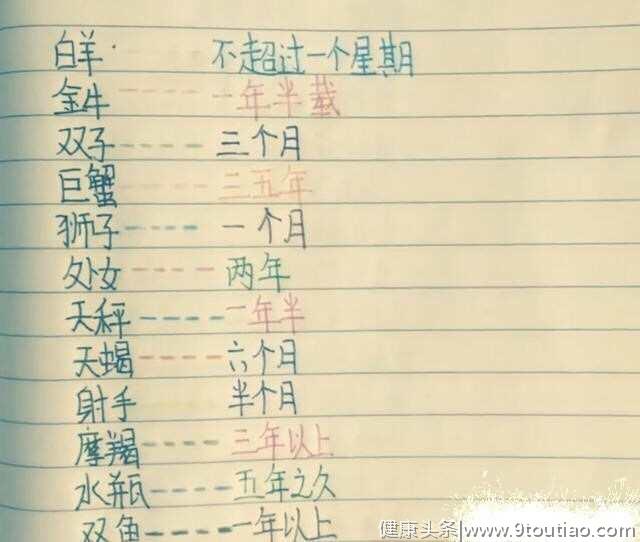 白羊 不超过一个星期
金牛 ---- 一年半载
双子 ----- 三个月
巨蟹 ---- 三五年
狮子 ---- 一个月
处女 ----- 两年
天秤 ---- 一年半
天蝎 ---- 六个月
射手 ---- 半个月
摩羯 ---- 三年以上
水瓶 ---- 五年之久
双鱼 ---- 一年以上
健康头条 www.9toutiao.com